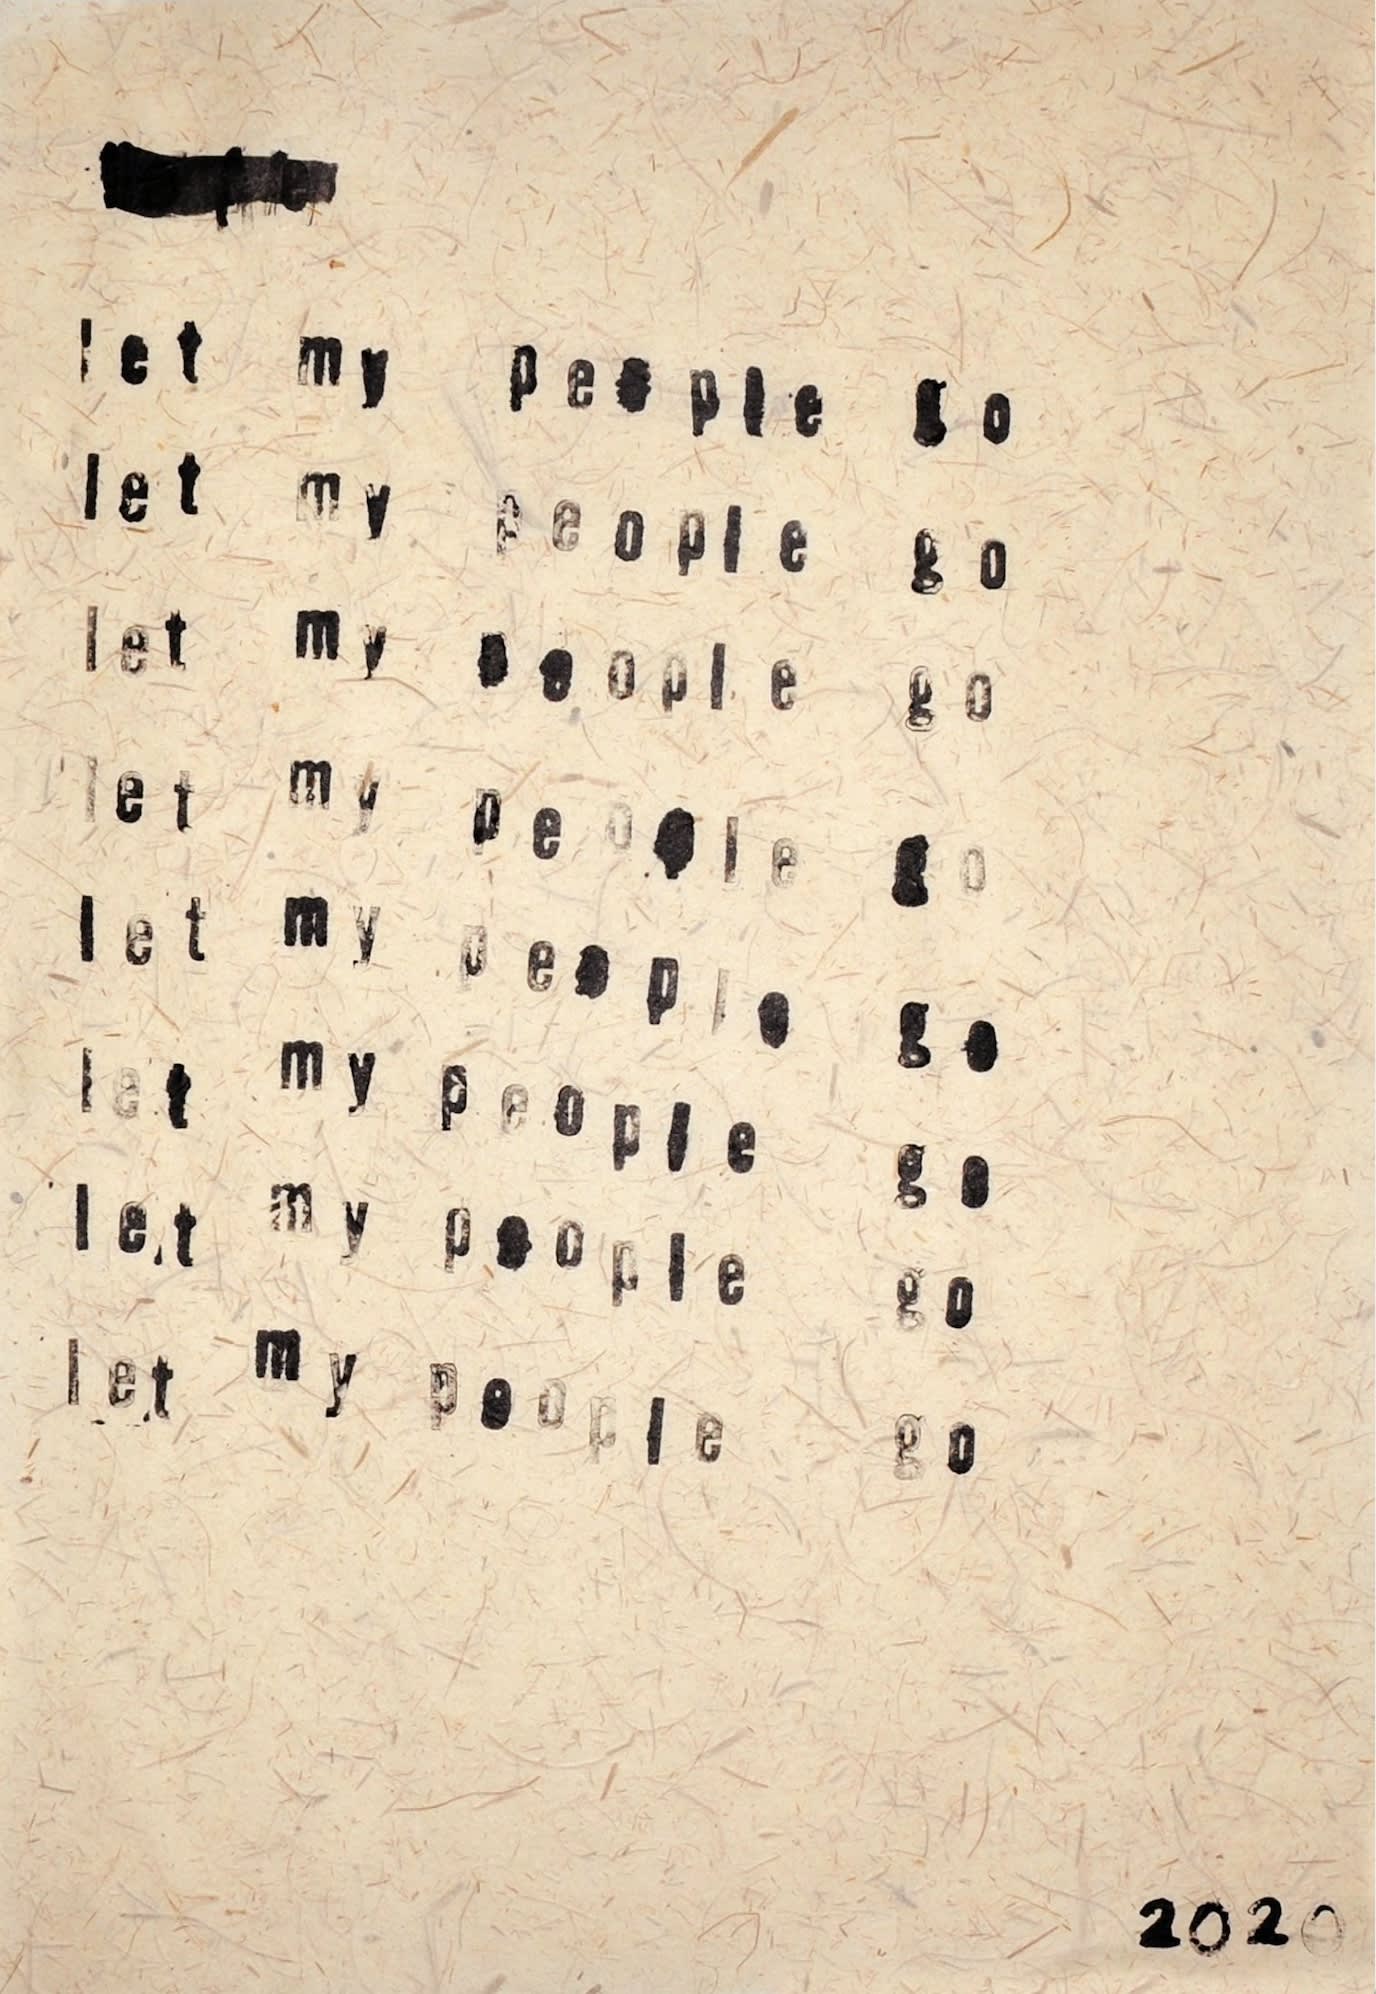 let my people go
let my people go
let my people go
let my people go
let my people go
let my people go
let my people go
let my people go
2020